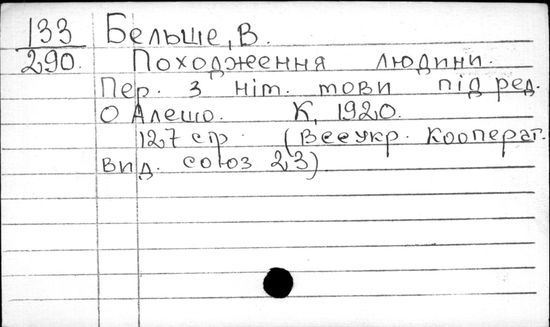 133 Бельше, В.
290. Походження людини.
Пер. з нім. мови під ред.
О Алешо. К, 1920.
127 стр. (Всеукр. Кооперат.
вид. союз 23)